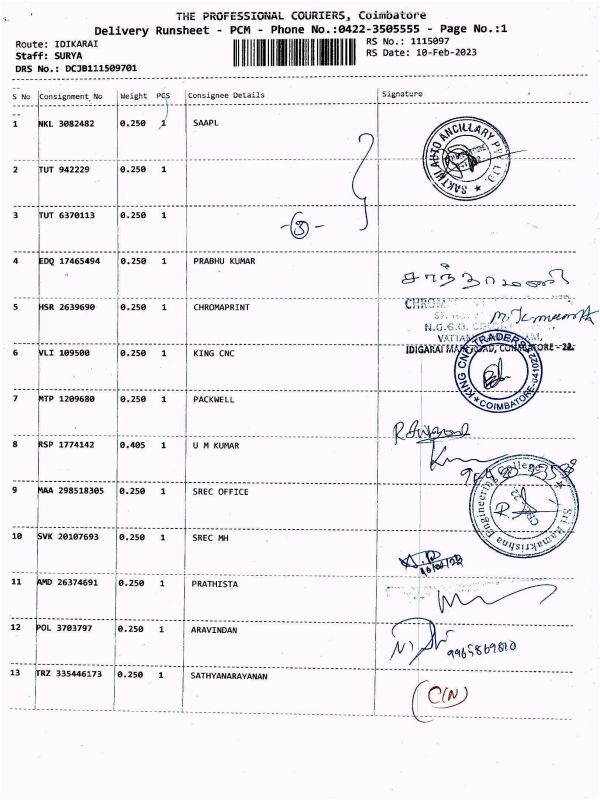 THE PROFESSIONAL COURIERS, Coimbatore
Delivery Runsheet - PCM - Phone No.:0422-3505555 - Page No.:1
Route: IDIKARAI RS No.: 1115097
Staff: SURYA RS Date: 10-Feb-2023
DRS No.: DCJB111509701
S No Consignment No Weight PCS Consignee Details Signature
1 NKL 3082482 0.250 1 SAAPL
SAKTHI AUTO ANCILLARY PVT. LTD.
2 TUT 942229 0.250 1
3 TUT 6370113 0.250 1
-(3)-
4 EDQ 17465494 0.250 1 PRABHU KUMAR
சாந்தாமணி
5 HSR 2639690 0.250 1 CHROMAPRINT
CHROM
N.G.G.O.
IDIGARAI MAIN ROAD, COIMBATORE - 22.
6 VLI 109500 0.250 1 KING CNC
KING CNC TRADERS
COIMBATORE-641022
7 MTP 1209680 0.250 1 PACKWELL
8 RSP 1774142 0.405 1 U M KUMAR
9 MAA 298518305 0.250 1 SREC OFFICE
Sri Ramakrishna Engineering College
CBE-22
10 SVK 20107693 0.250 1 SREC MH
11 AMD 26374691 0.250 1 PRATHISTA
12 POL 3703797 0.250 1 ARAVINDAN
13 TRZ 335446173 0.250 1 SATHYANARAYANAN
C(N)